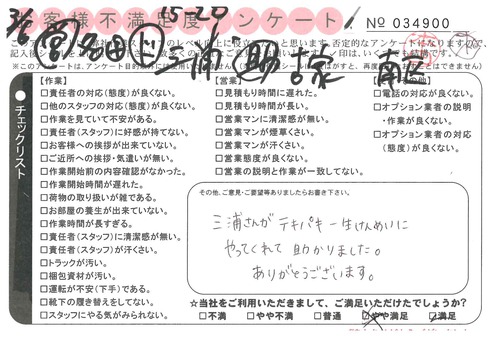 お客様不満足度アンケート
No 034900
3/6
15-20
チェックリスト
【作業】
□責任者の対応(態度)が良くない。
□他のスタッフの対応(態度)が良くない。
□作業を見ていて不安がある。
□責任者(スタッフ)に好感が持てない。
□お客様への挨拶が出来ていない。
□ご近所への挨拶・気遣いが無い。
□作業開始前の内容確認がなかった。
□作業開始時間が遅れた。
□荷物の取り扱いが雑である。
□お部屋の養生が出来ていない。
□作業時間が長すぎる。
□責任者(スタッフ)に清潔感が無い。
□責任者(スタッフ)が汗くさい。
□トラックが汚い。
□梱包資材が汚い。
□運転が不安(下手)である。
□靴下の履き替えをしてない。
□スタッフにやる気がみられない。
【営業】
□見積もり時間に遅れた。
□見積もり時間が長い。
□営業マンに清潔感が無い。
□営業マンが煙草くさい。
□営業マンが汗くさい。
□営業態度が良くない。
□営業の説明と作業が一致してない。
□電話の対応が良くない。
□オプション業者の説明
・作業が良くない。
□オプション業者の対応
(態度)が良くない。
その他、ご意見・ご要望等ありましたらお書き下さい。
三浦さんがテキパキ一生けんめいに
やってくれて助かりました。
ありがとうございます。
☆当社をご利用いただきまして、ご満足いただけたでしょうか?
□不満 □やや不満 □普通 □やや満足 □満足